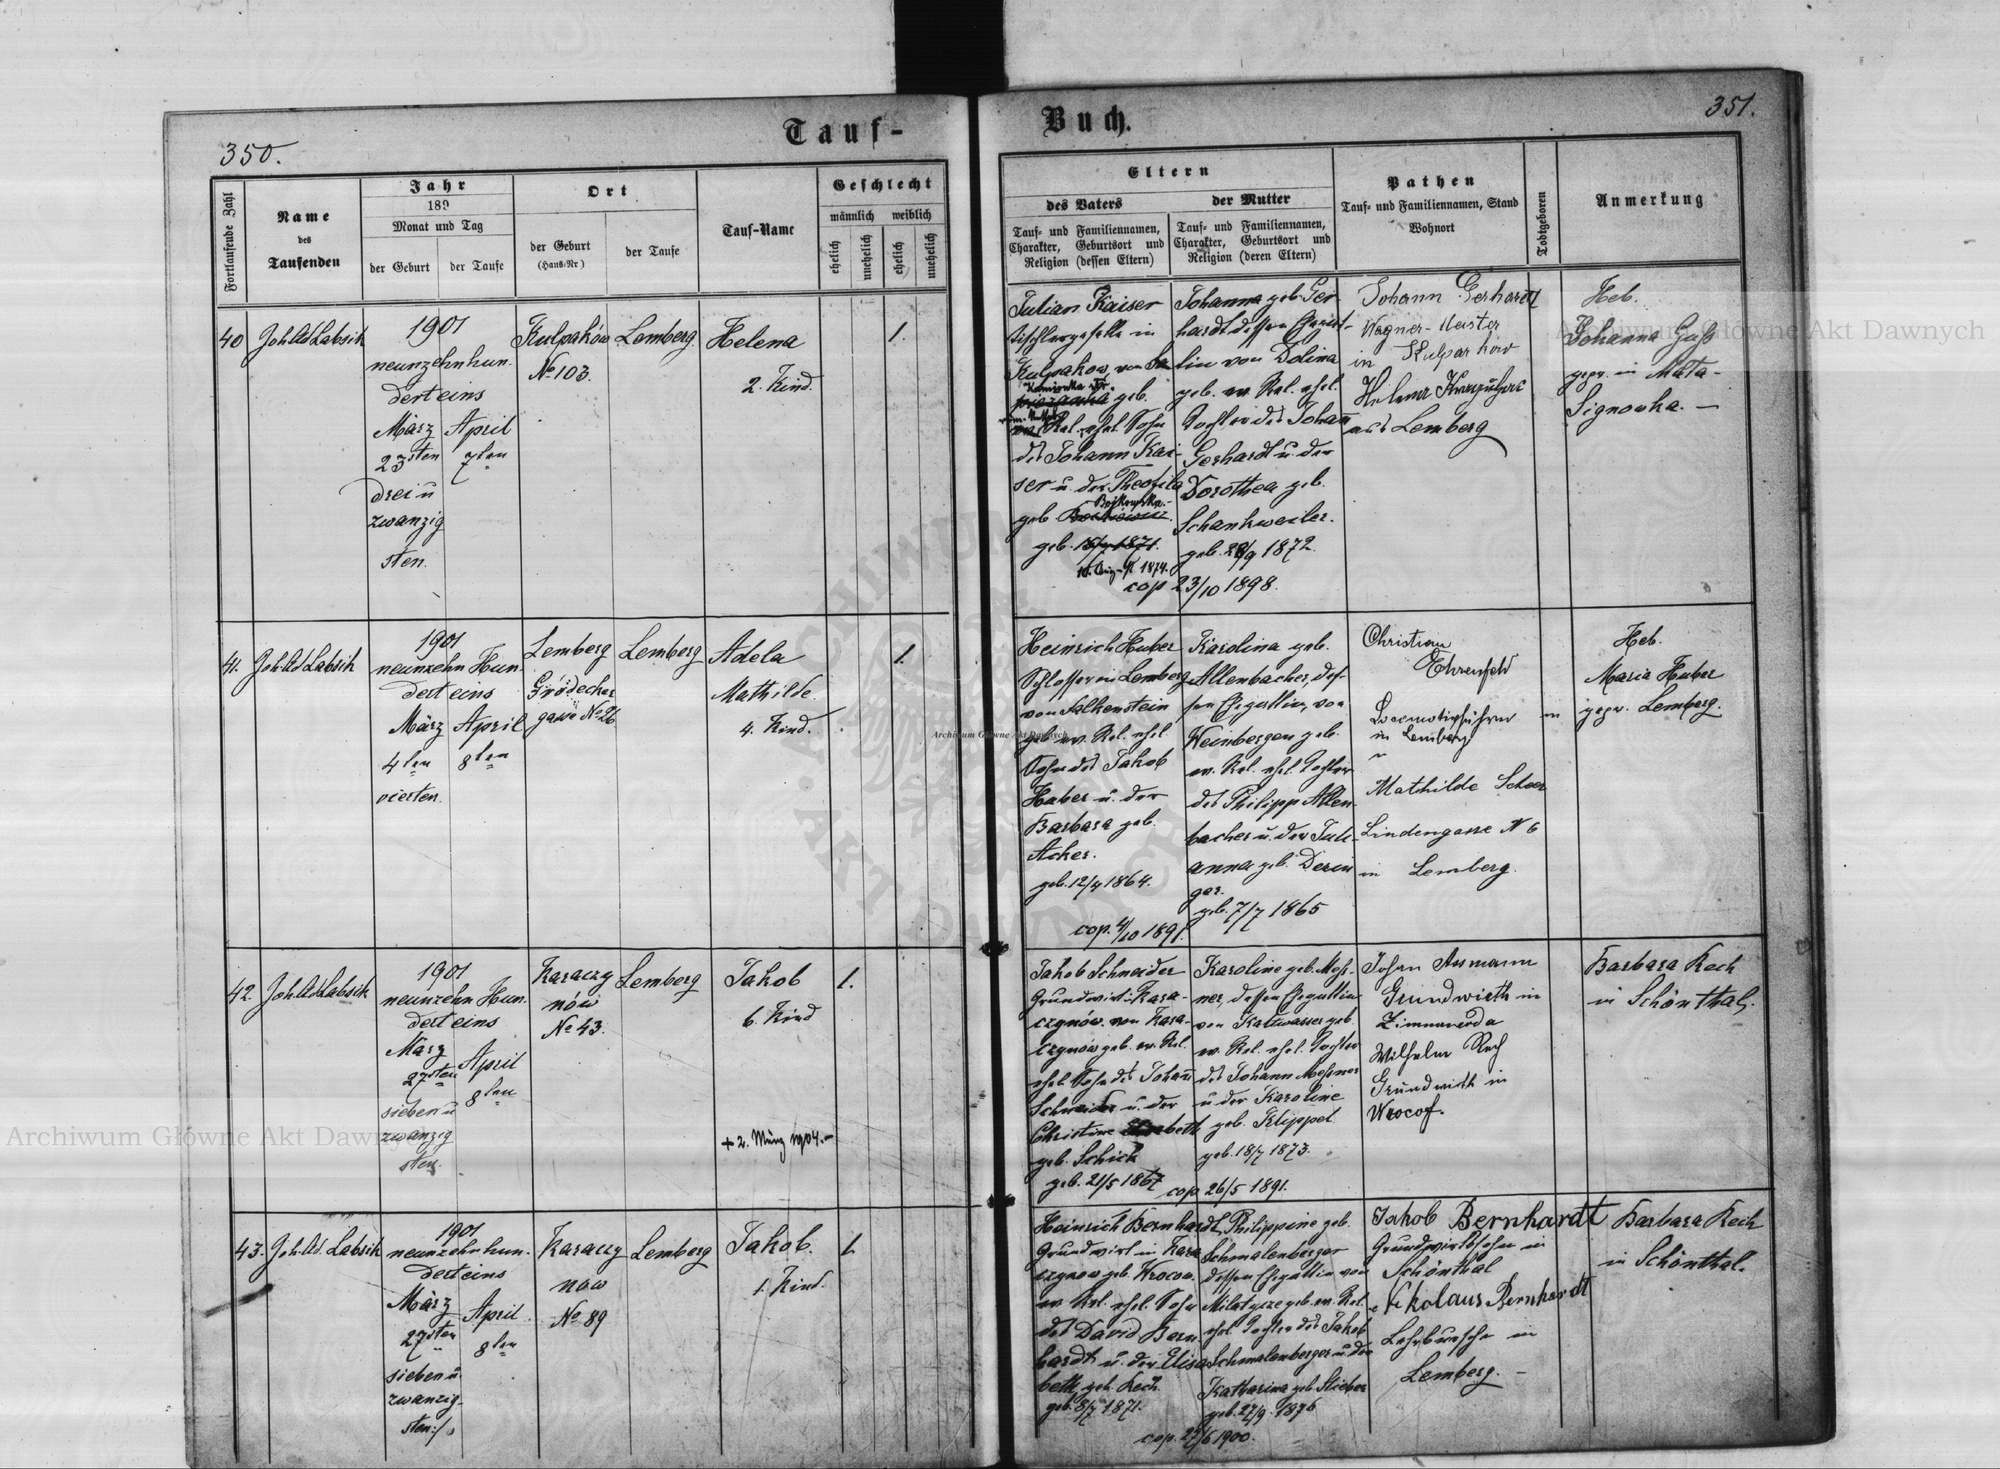 350.
Tauf-
Buch.
351.
Fortlaufende Zahl
Name
des
Taufenden
Jahr
189
Monat und Tag
der Geburt
der Taufe
Ort
der Geburt
(Haus-Nr)
der Taufe
Tauf-Name
Geschlecht
männlich weiblich
ehelich
unehelich
ehelich
unehelich
Eltern
des Vaters
Tauf- und Familiennamen,
Charakter, Geburtsort und
Religion (dessen Eltern)
der Mutter
Tauf- und Familiennamen,
Charakter, Geburtsort und
Religion (deren Eltern)
Pathen
Tauf- und Familiennamen, Stand
Wohnort
Todtgeboren
Anmerkung
40
Joh Ad Labsik
1901
neunzehnhun.
dert eins
März April
23sten 7ten
drei u
zwanzig
sten.
Kulpaków
No 103.
Lemberg
Helena
2. Kind.
1.
Julian Kaiser
Tischlergeselle in
Kulpakow, von
geb.
Rel. ehel. Sohn
des Johann Kai-
ser u. der Theofila
Bojkowska.-
geb.
geb. 18/9 1871.
10. Aug. 1874.
Johanna geb. Ger-
hardt dessen Ehegat-
tin von Dolina
geb. ev. Rel. ehel.
Tochter des Johann
Gerhardt u. der
Dorothea geb.
Schankweiler.
geb. 28/9 1872.
cop 23/10 1898.
Johann Gerhardt
Wagner-Meister
in Kulparków
Helena
aus Lemberg
Heb.
Johanna Guß
gepr. in Mata-
Signowka. —
41.
Joh. Ad Labsik
1901
neunzehn Hun.
dert eins
März April
4ten 8ten
vierten.
Lemberg
Grödecker
gasse No 26
Lemberg
Adela
Mathilde.
4. Kind.
1.
Heinrich Huber
Schlosser in Lemberg
von Falkenstein
geb. ev. Rel. ehel
Sohn des Jakob
Huber u. der
Barbara geb.
Acker.
geb. 12/4 1864.
Karolina geb.
Allenbacher, des-
sen Ehegattin, von
Weinbergen geb.
ev. Rel. ehel. Tochter
des Philipp Allen-
bacher u. der Juli-
anna geb. Derin
ger.
geb. 7/7 1865
cop. 4/10 1891.
Christian
Ehrenfeld
Locomotivführer
in Lemberg
Mathilde Scheer
Lindengasse N 6
in Lemberg.
Heb.
Maria Huber
gepr. Lemberg.
42.
Joh Ad Labsik
1901
neunzehn Hun.
dert eins
März April
27sten 8ten
sieben u
zwanzig
sten.
Karaczy
nów
No 43.
Lemberg
Jakob
6. Kind
+ 2. März 1904.-
1.
Jakob Schneider
Grundwirt Kara-
czynów. von Kara-
czynów geb. ev. Rel.
ehel. Sohn des Johann
Schneider u. der
Christine
geb. Schick
geb. 21/5 1867
Karoline geb. Meß-
ner, dessen Ehegattin
von Kaltwasser geb.
ev. Rel. ehel. Tochter
des Johann Meßner
u der Karoline
geb. Klippel
geb. 18/7 1873.
cop. 26/5 1891.
Johann Assmann
Grundwirth in
Zimnawoda
Wilhelm Rech
Grundwirth in
Wrocow.
Barbara Kech
in Schönthal.
43.
Joh. Ad. Labsik
1901
neunzehnhun.
dert eins
März April
27sten 8ten
sieben u
zwanzig-
sten:/.
Karaczy
now
No 89
Lemberg
Jakob.
1. Kind.
1.
Heinrich Bernhardt,
Grundwirt in Kara
czynow geb. Wrocow.
ev. Rel. ehel. Sohn
des David Bern
hardt u. der Elisa
beth geb. Kech.
geb. 8/7 1871.
Philippine geb.
Schmalenberger
dessen Ehegattin von
geb. ev. Rel.
ehel. Tochter des Jakob
Schmalenberger u. der
Katharina geb. Stieber
geb. 27/9. 1876
cop. 27/6 1900.
Jakob Bernhardt
Grundwirthsohn in
Schönthal
Nikolaus Bernhardt
Lehrbursche in
Lemberg. -
Barbara Kech
in Schönthal.
Archiwum Główne Akt Dawnych
Archiwum Główne Akt Dawnych
Archiwum Główne Akt Dawnych